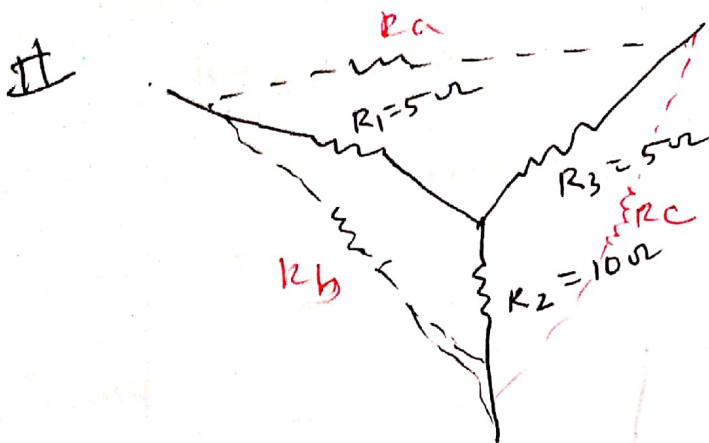 Ra
II
R1=5Ω
R3=5Ω
Rc
Rb
R2=10Ω